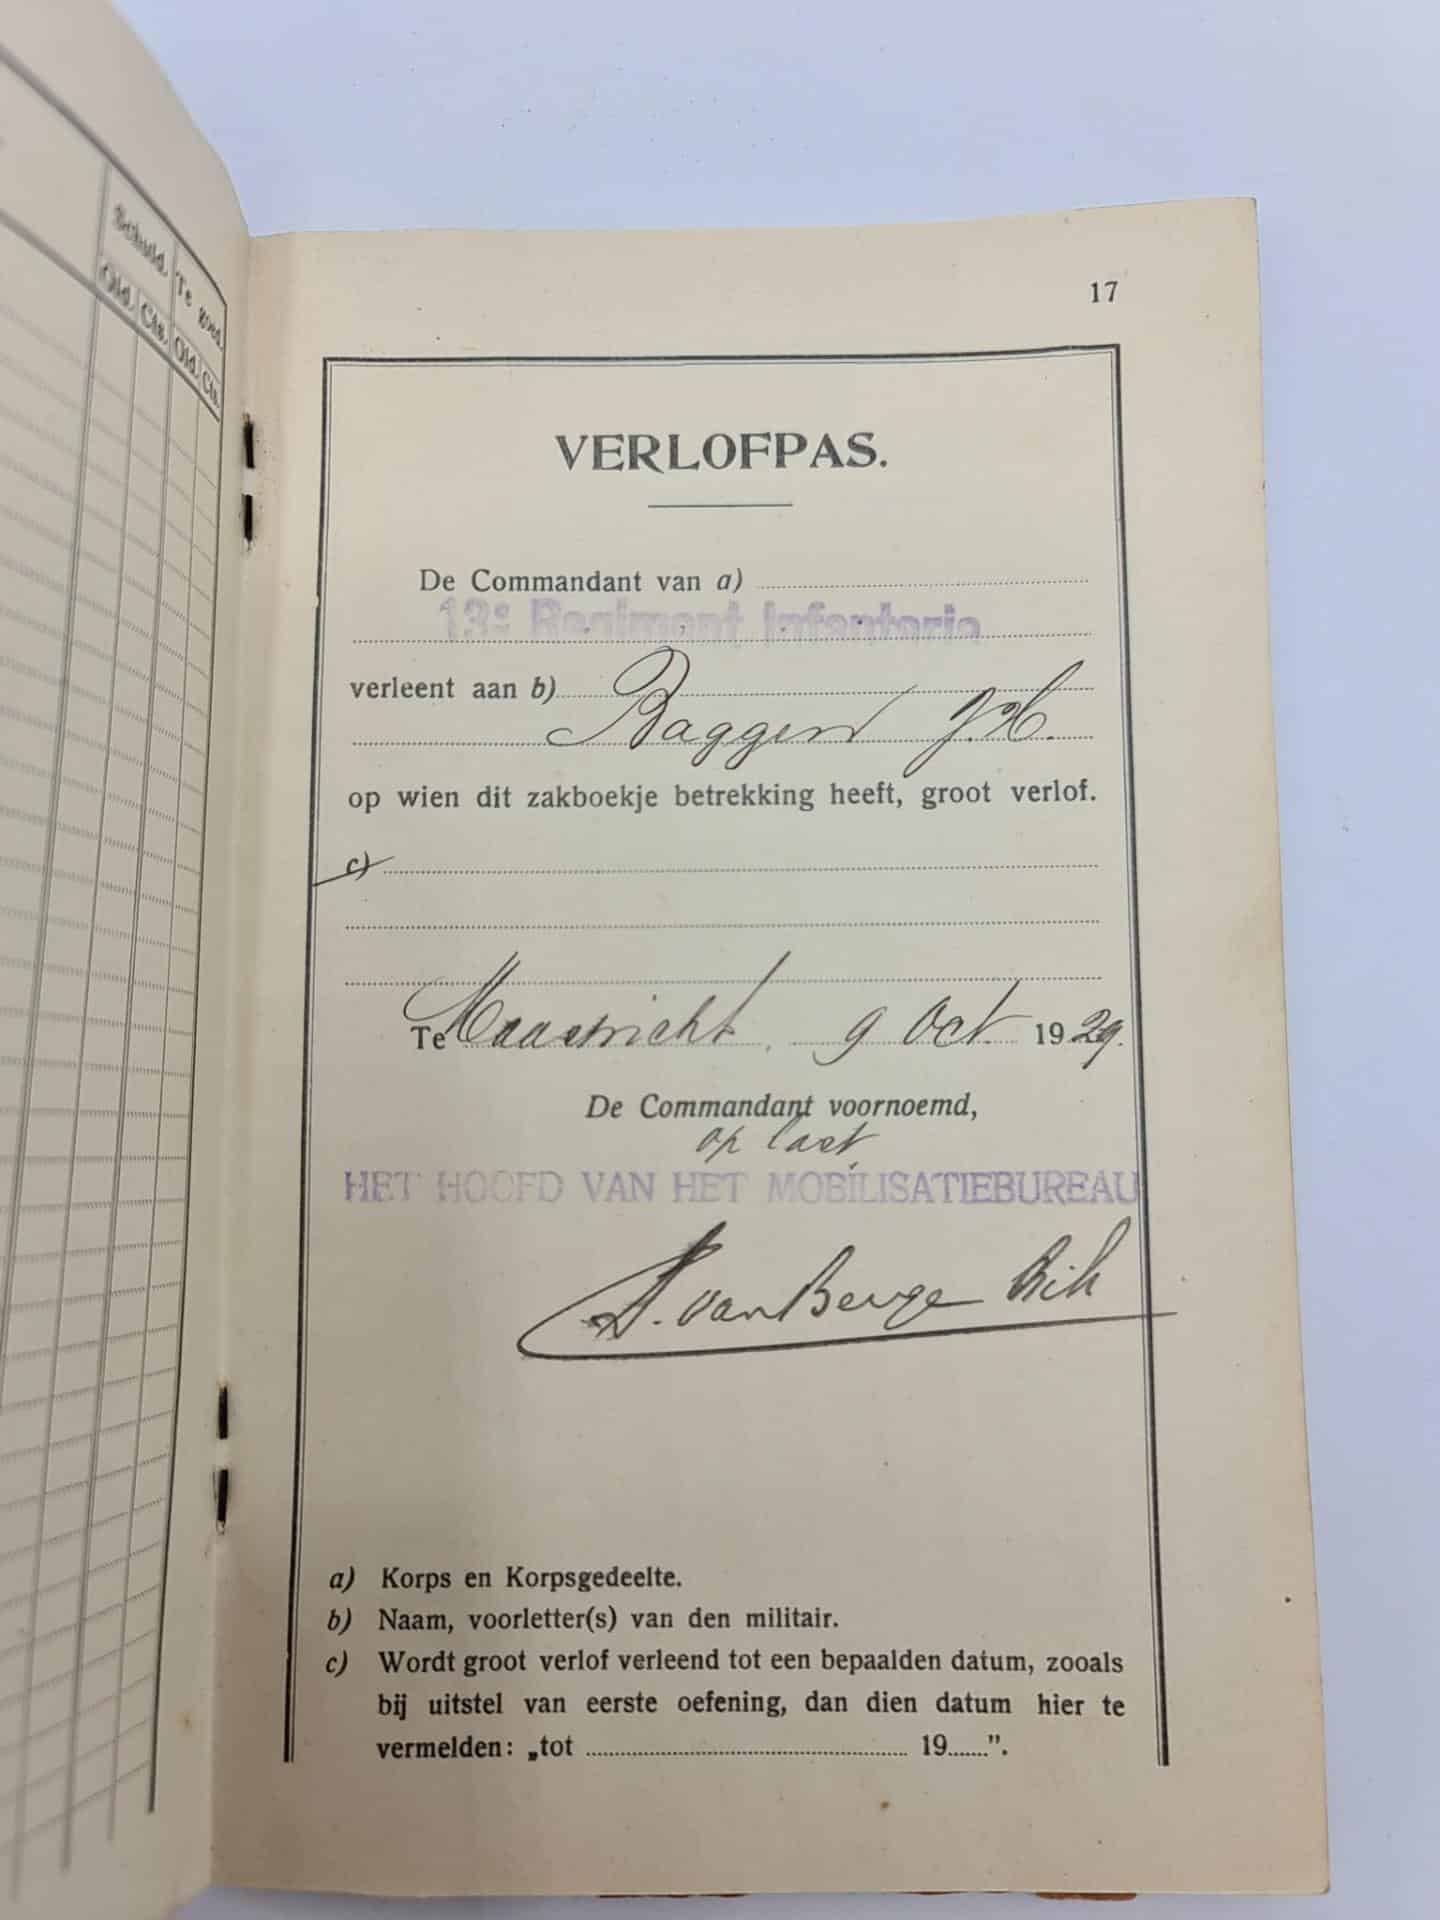 Schuld. Te goed.
Gld. Cts. Gld. Cts.
17
VERLOFPAS.
De Commandant van a)
13e Regiment Infanterie
verleent aan b)
Baggen J.H.
op wien dit zakboekje betrekking heeft, groot verlof.
c)
Te Maastricht, 9 Oct. 1929.
De Commandant voornoemd,
op last
HET HOOFD VAN HET MOBILISATIEBUREAU
van Berge
a) Korps en Korpsgedeelte.
b) Naam, voorletter(s) van den militair.
c) Wordt groot verlof verleend tot een bepaalden datum, zooals
bij uitstel van eerste oefening, dan dien datum hier te
vermelden: „tot ........ 19......”.